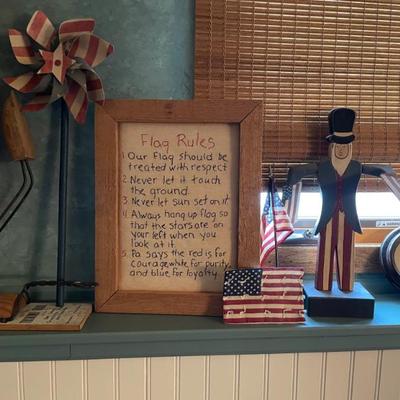 Flag Rules
1 Our Flag should be
treated with respect
2. Never let it touch
the ground.
3. Never let sun set on it
4. Always hang up flag so
that the stars are on
your left when you
look at it.
5. Pa says the red is for
courage, white for purity
and blue for loyalty.